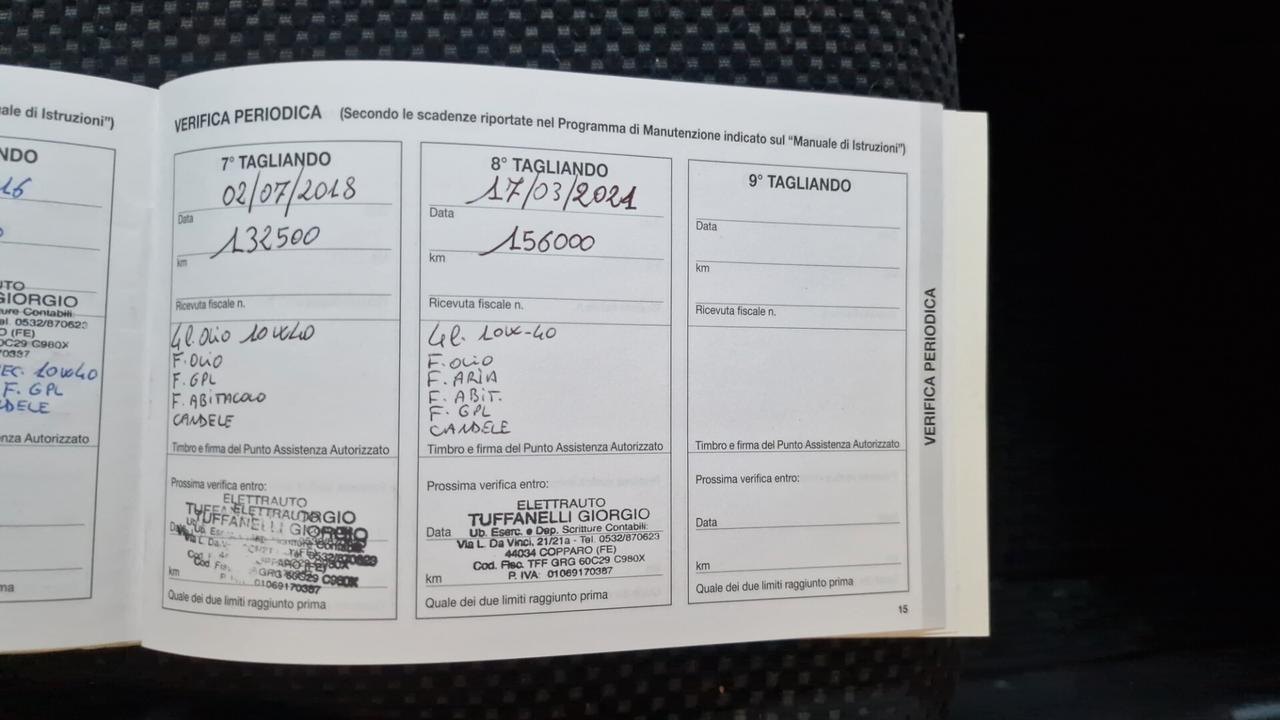 ale di Istruzioni")
NDO
16
UTO
GIORGIO
ture Contabili:
el. 0532/870623
O (FE)
0C29 C980X
70387
EC. 10W40
F. GPL
NDELE
nza Autorizzato
ma
VERIFICA PERIODICA (Secondo le scadenze riportate nel Programma di Manutenzione indicato sul "Manuale di Istruzioni")
7° TAGLIANDO
02/07/2018
Data
132500
km
Ricevuta fiscale n.
4l. OLIO 10W40
F. OLIO
F. GPL
F. ABITACOLO
CANDELE
Timbro e firma del Punto Assistenza Autorizzato
Prossima verifica entro:
ELETTRAUTO
TUFFANELLI GIORGIO
Data
km
P. IVA: 01069170387
Quale dei due limiti raggiunto prima
8° TAGLIANDO
17/03/2021
Data
156000
km
Ricevuta fiscale n.
4l. 10W-40
F. OLIO
F. ARIA
F. ABIT.
F. GPL
CANDELE
Timbro e firma del Punto Assistenza Autorizzato
Prossima verifica entro:
ELETTRAUTO
TUFFANELLI GIORGIO
Data
Ub. Eserc. e Dep. Scritture Contabili:
Via L. Da Vinci, 21/21a - Tel. 0532/870623
44034 COPPARO (FE)
Cod. Fisc. TFF GRG 60C29 C980X
km
P. IVA: 01069170387
Quale dei due limiti raggiunto prima
9° TAGLIANDO
Data
km
Ricevuta fiscale n.
Timbro e firma del Punto Assistenza Autorizzato
Prossima verifica entro:
Data
km
Quale dei due limiti raggiunto prima
15
VERIFICA PERIODICA